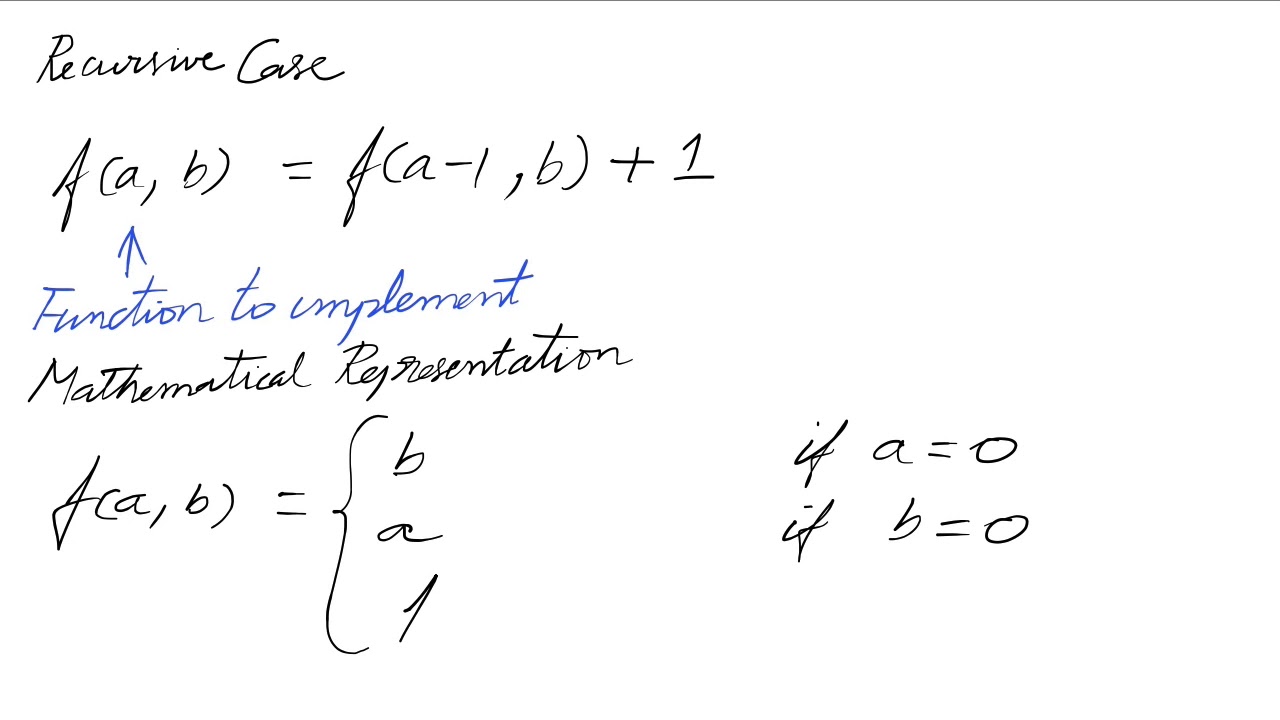 Recursive Case
f(a, b) = f(a-1, b) + 1
↑
Function to implement
Mathematical Representation
f(a, b) = {
b if a = 0
a if b = 0
1